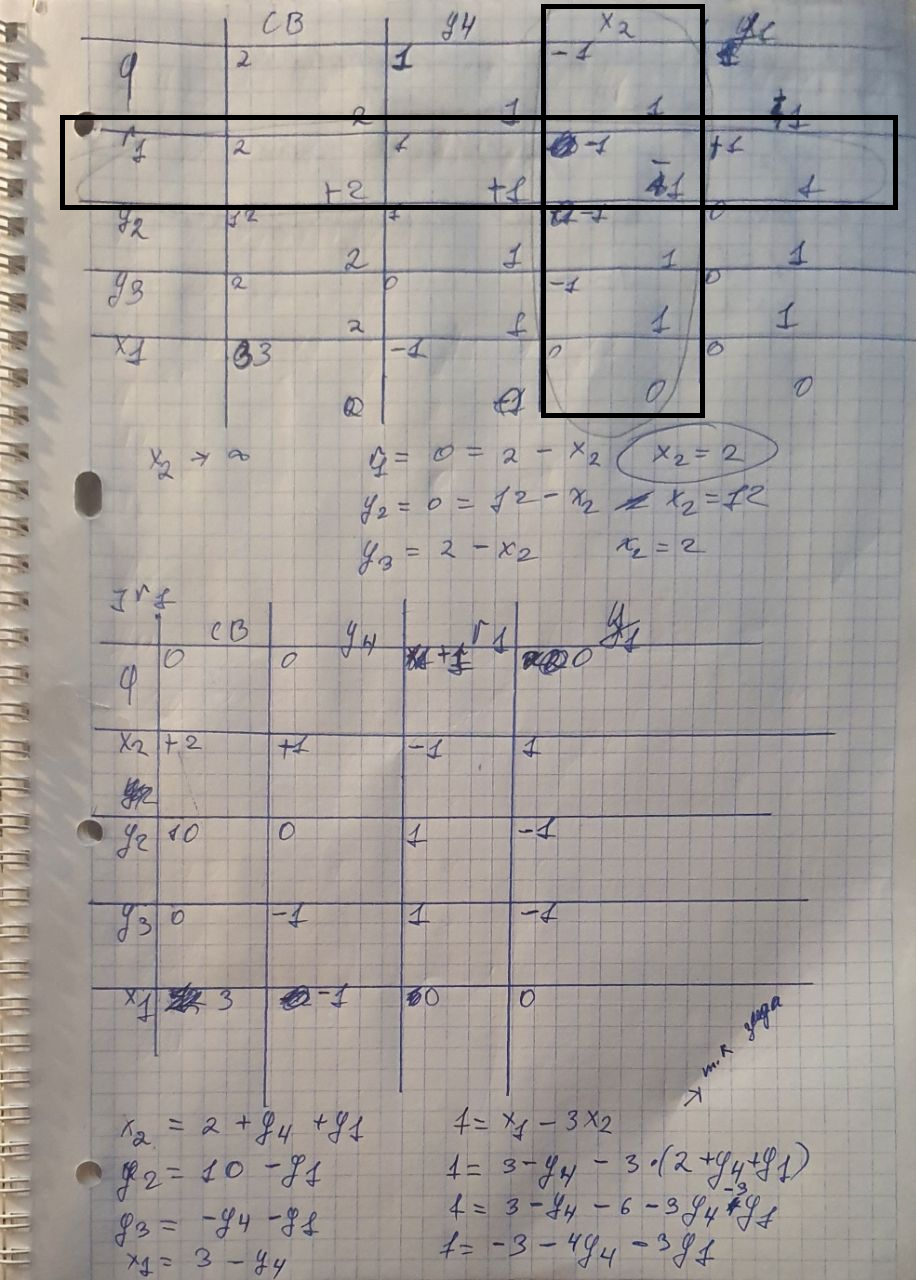 СВ y4 x2 y1
φ 2 2 1 1 -1 1 1 +1
r1 2 +2 1 +1 -1 -1 +1 1
y2 12 2 1 1 -1 1 0 1
y3 2 2 0 1 -1 1 0 1
x1 3 0 -1 0 0 0 0
x2 → ∞ r1 = 0 = 2 - x2 x2 = 2
y2 = 0 = 12 - x2 x2 = 12
y3 = 2 - x2 x2 = 2
r1
СВ y4 r1 y1
φ 0 0 +1 0
x2 +2 +1 -1 1
y2 10 0 1 -1
y3 0 -1 1 -1
x1 3 -1 0 0
→ т.к
x2 = 2 + y4 + y1 f = x1 - 3x2
y2 = 10 - y1 f = 3 - y4 - 3·(2 + y4 + y1)
y3 = -y4 - y1 f = 3 - y4 - 6 - 3y4 -3y1
x1 = 3 - y4 f = -3 - 4y4 - 3y1